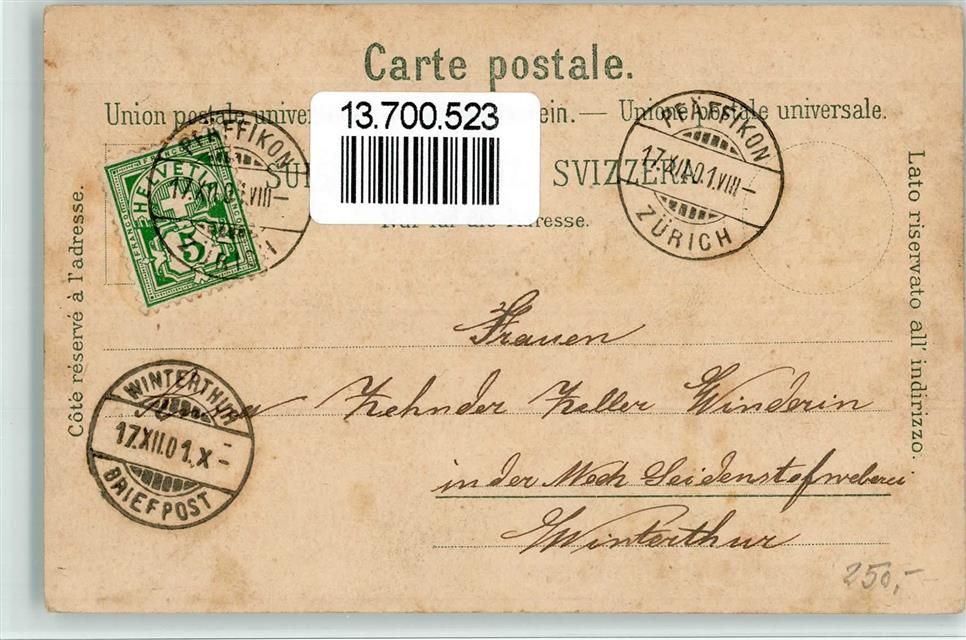 Carte postale.
Union postale univer ein. — Unione postale universale.
13.700.523
SU SVIZZERA
Nur für die Adresse.
Côté réservé à l'adresse.
Lato riservato all' indirizzo.
PFÄFFIKON
17.XII.01.VIII—
ZÜRICH
PFÄFFIKON
17.XII.01.VIII—
FRANCO
HELVETIA
5
WINTERTHUR
17.XII.01.X—
BRIEFPOST
Frauen
Zehnder Zeller Winderin
in der Mech Seidenstofweberei
Winterthur
250,-